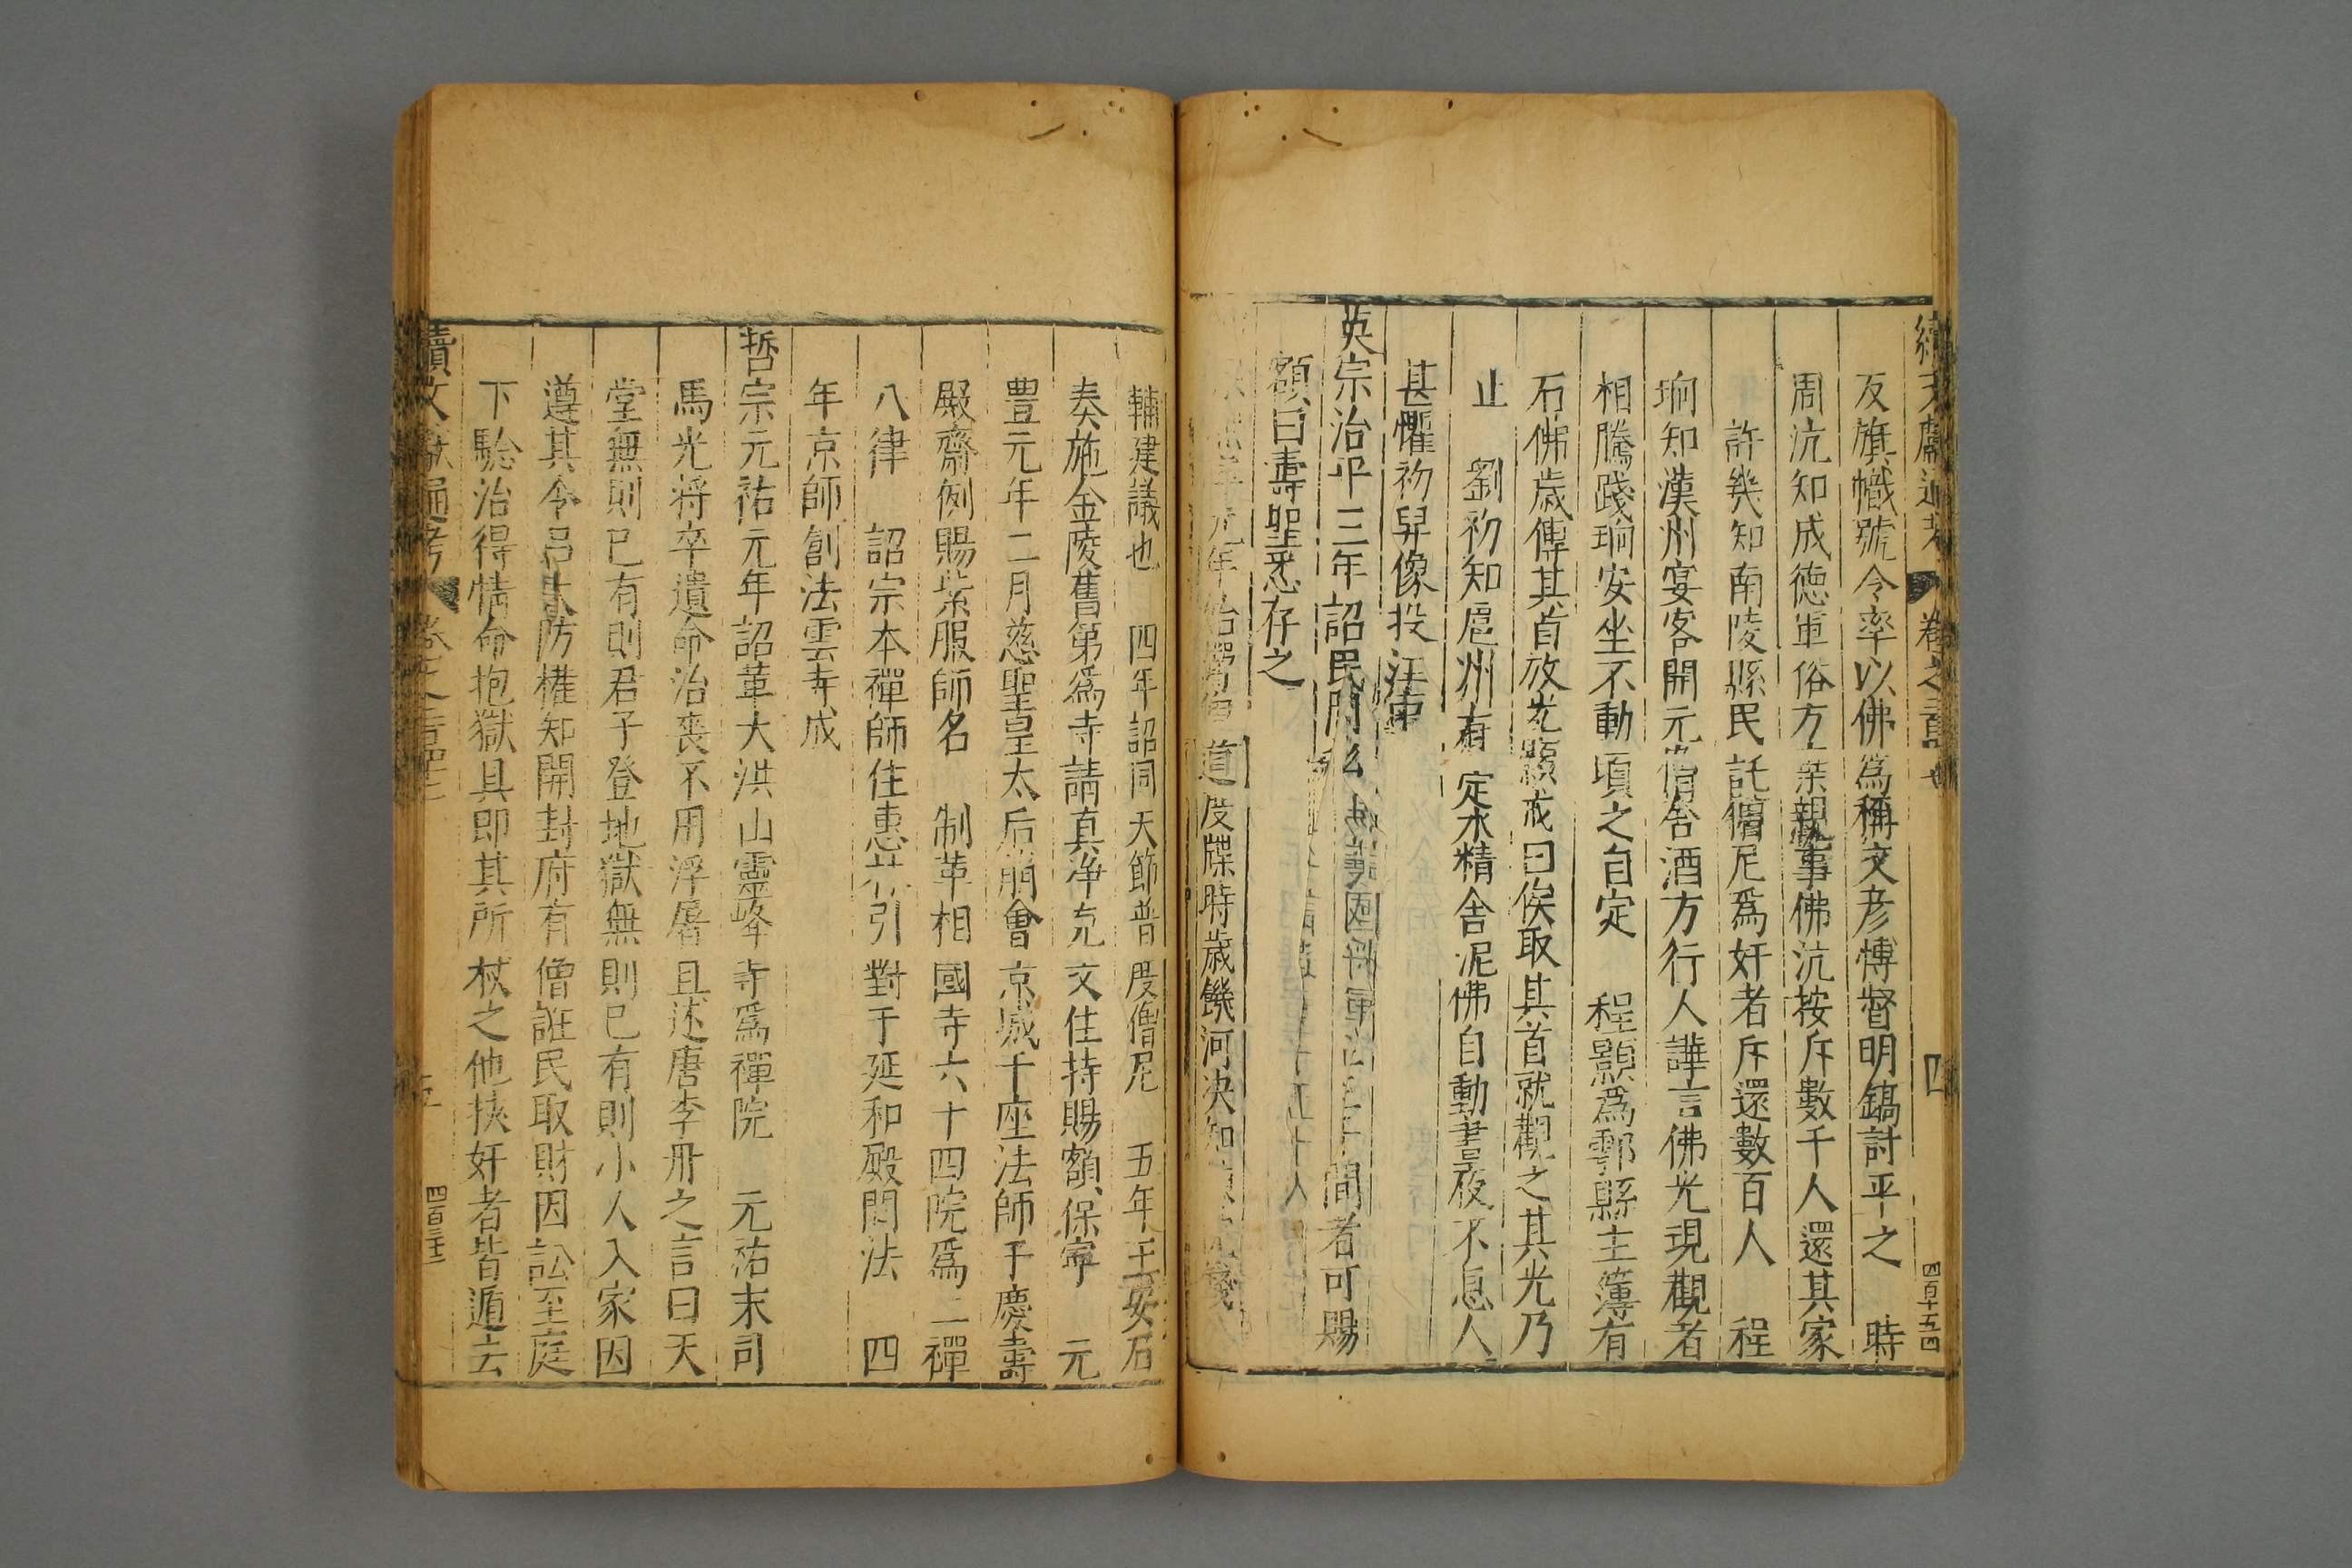 續文獻通考 卷之 四 四百十五四
友旗幟號令率以佛爲稱文彦愽督明鎬討平之 時
周沆知成徳軍俗方 親事佛沆按斥數千人還其家
許幾知南陵縣民託僧尼爲奸者斥還數百人 程
珦知漢州宴客開元僧舎酒方行人譁言佛光現觀者
相騰踐珦安坐不動頃之自定 程顥爲鄠縣主簿有
石佛歳傳其首放光顥戒曰俟取其首就觀之其光乃
止 劉初知扈州有 定水精舎泥佛自動晝夜不息人
甚懼初舁像投江中
英宗治平三年詔民間 間者可賜
額曰壽聖悉存之
元年始 道度牒時歳饑河決知
輔建議也 四年詔同天節普度僧尼 五年王安石
奏施金陵舊第爲寺請真净克文住持賜額保寧 元
豊元年二月慈聖皇太后崩會京城千座法師于慶壽
殿齋例賜紫服師名 制革相國寺六十四院爲二禪
八律 詔宗本禪師住惠林引對于延和殿問法 四
年京師創法雲寺成
哲宗元祐元年詔革大洪山靈峰寺爲禪院 元祐末司
馬光将卒遺命治喪不用浮屠且述唐李舟之言曰天
堂無則已有則君子登地獄無則已有則小人入家因
遵其令呂大防權知開封府有僧誑民取財因訟至庭
下驗治得情命抱獄具即其所杖之他挟奸者皆遁去
續文獻通考 四百三十三